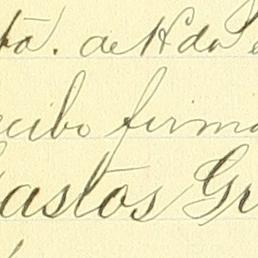 ta. de Hda
ecibo firma
astos Gr